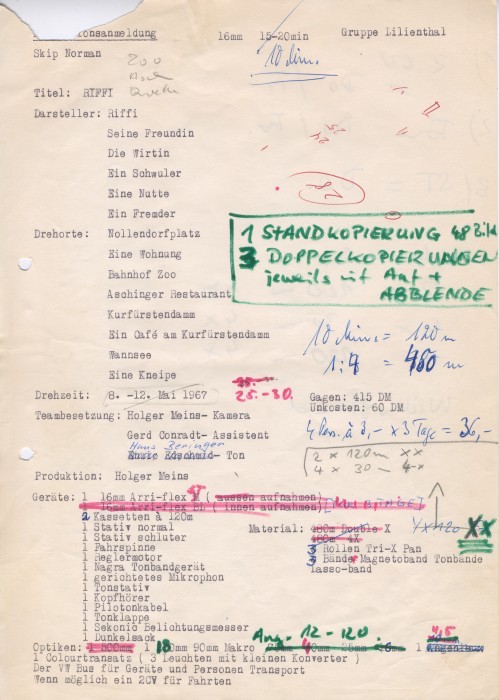 onsanmeldung 16mm 15-20min Gruppe Lilienthal
Skip Norman
ZOO
10 Min.
Titel: RIFFI
Darsteller: Riffi
Seine Freundin
Die Wirtin
Ein Schwuler
Eine Nutte
Ein Fremder
25
24
28
1 STANDKOPIERUNG 48 Bild
3 DOPPELKOPIERUNGEN
jeweils mit Auf +
ABBLENDE
Drehorte: Nollendorfplatz
Eine Wohnung
Bahnhof Zoo
Aschinger Restaurant
Kurfürstendamm
Ein Café am Kurfürstendamm
Wannsee
Eine Kneipe
10 Min = 120 m
1:4 = 480 m
Drehzeit: 8. -12. Mai 1967 25.-30.
Gagen: 415 DM
Unkosten: 60 DM
Teambesetzung: Holger Meins- Kamera
Gerd Conradt- Assistent
Hans Beringer
Enzio Edschmid- Ton
4 Pers. à 3,- x 3 Tage = 36,-
2 x 120m xx
4 x 30 - 4x
Produktion: Holger Meins
Geräte: 1 16mm Arri-flex ( aussen aufnahmen)
16mm Arri-flex BL ( innen aufnahmen)
2 Kassetten à 120m
1 Stativ normal
1 Stativ schluter
1 Fahrspinne
1 Reglermotor
1 Nagra Tonbandgerät
1 gerichtetes Mikrophon
1 Tonstativ
1 Kopfhörer
1 Pilotonkabel
1 Tonklappe
1 Sekonic Belichtungsmesser
1 Dunkelsack
Material: 480m Double X
480m 4X
3 Rollen Tri-X Pan
3 Bänder Magnetoband Tonbände
lasso-band
4x120 XX
Ang. 12-120.
Optiken: 1 300mm 1 90mm Makro 1 Angenieux
1 Colourtransatz ( 3 Leuchten mit kleinen Konverter )
Der VW Bus für Geräte und Personen Transport
Wenn möglich ein 2CV für Fahrten